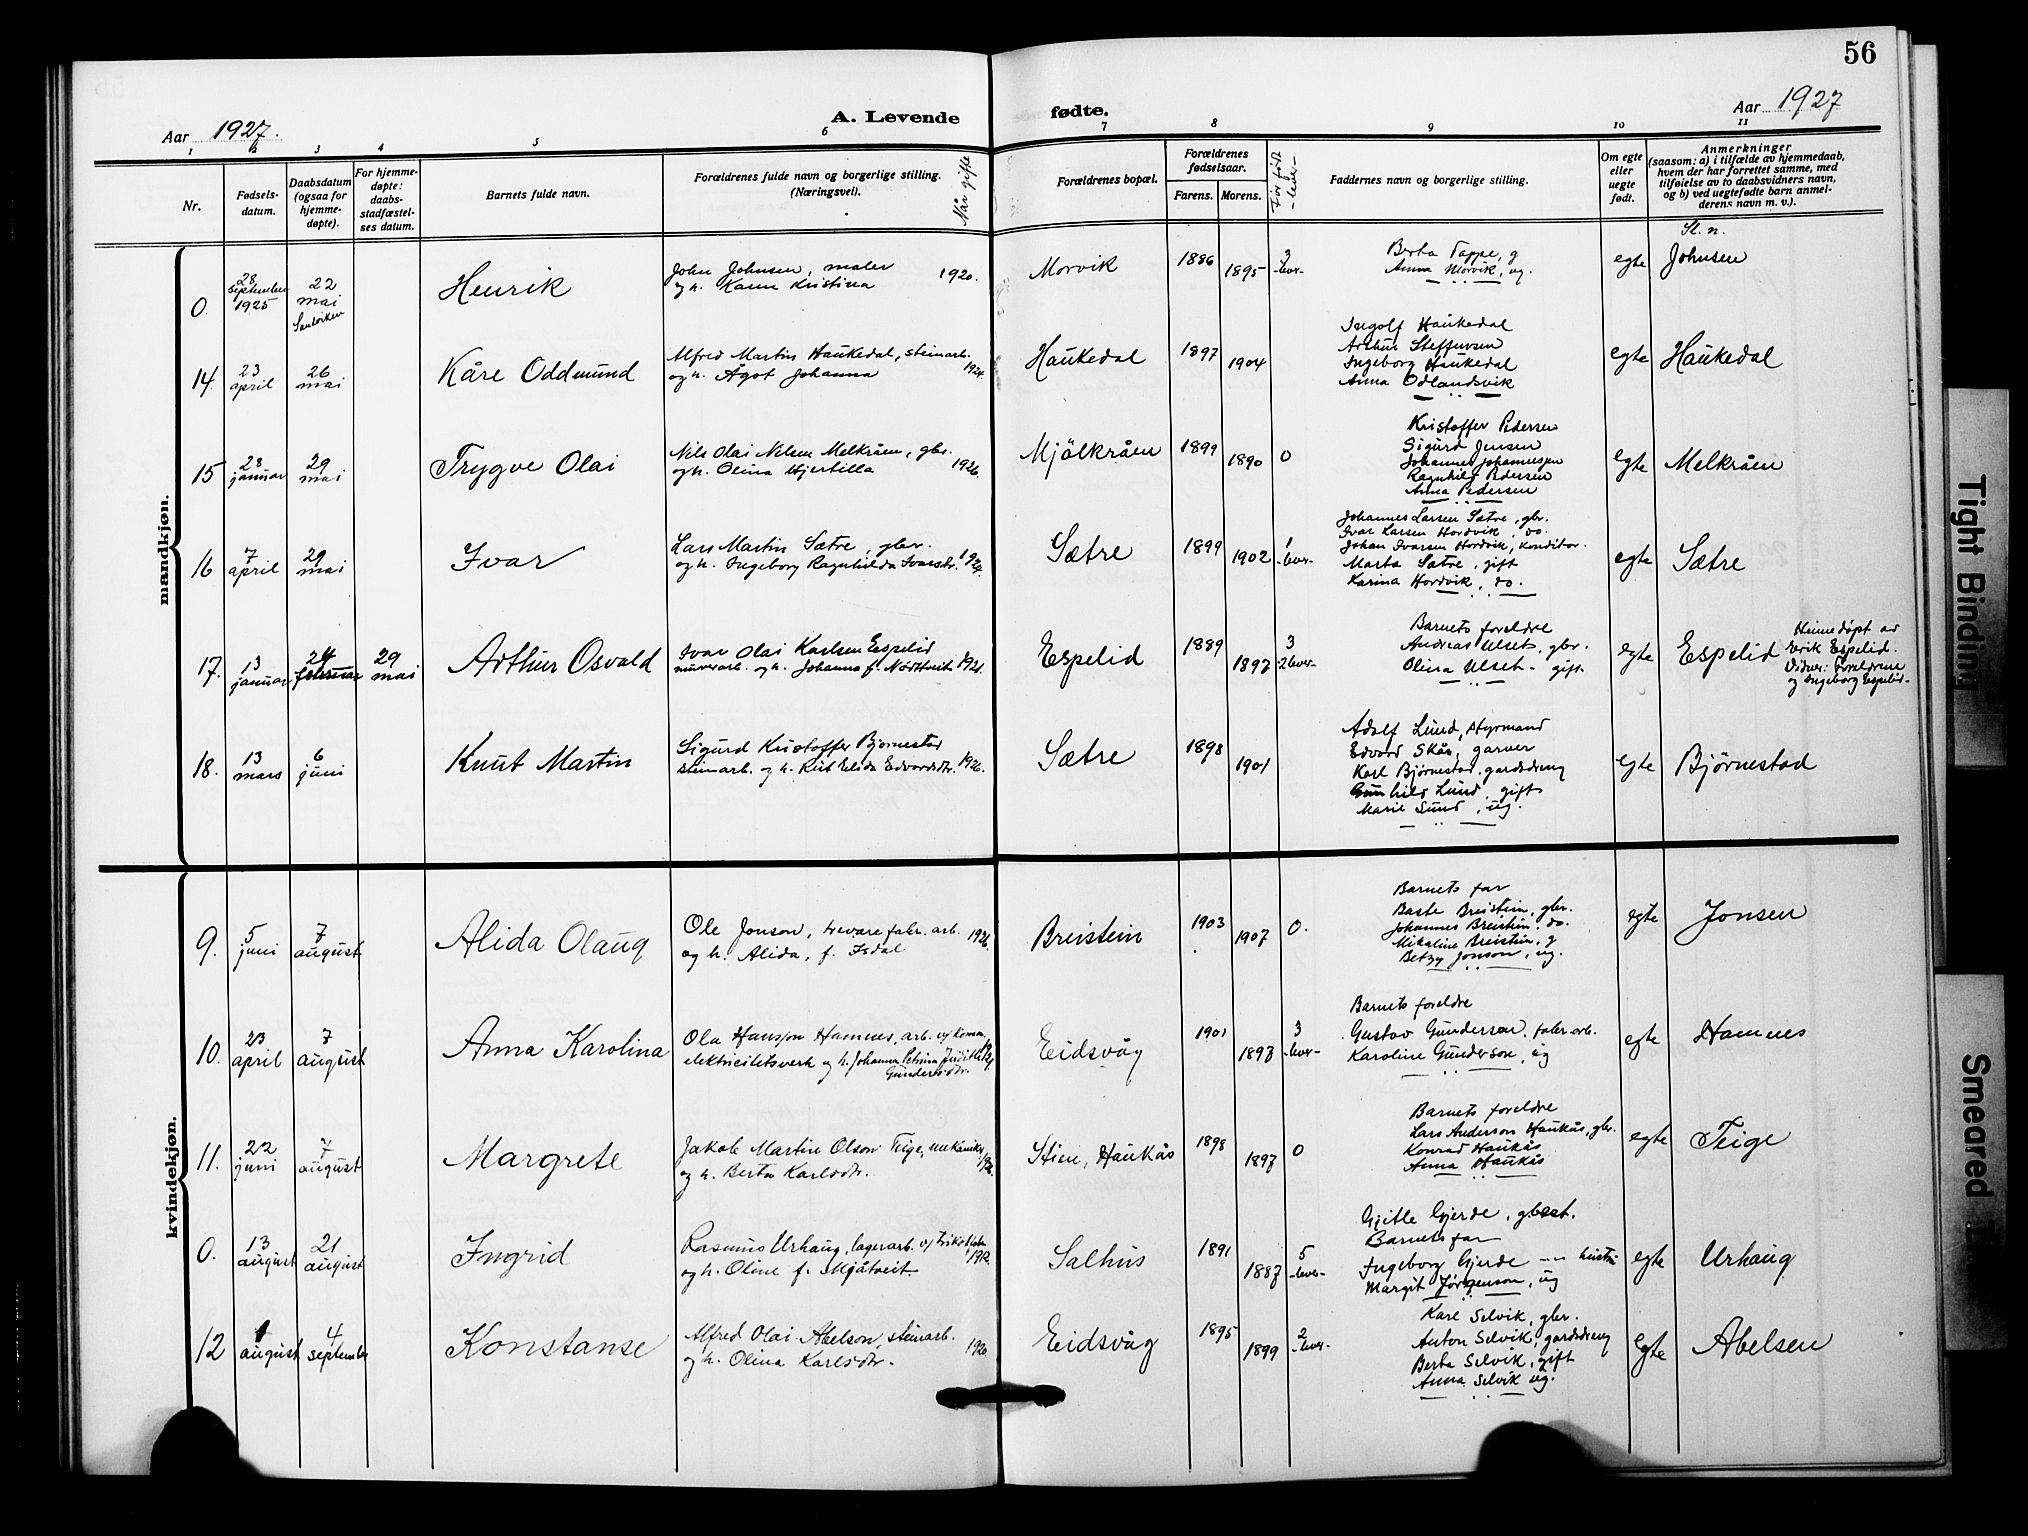 56
Aar 1927.
A. Levende
fødte.
Aar 1927
1 2 3 4 5 6 7 8 9 10 11
Nr.
Fødsels-
datum.
Daabsdatum
(ogsaa for
hjemme-
døpte).
For hjemme-
døpte:
daabs-
stadfæstel-
ses datum.
Barnets fulde navn.
Forældrenes fulde navn og borgerlige stilling.
(Næringsvei).
Når gifte
Forældrenes bopæl.
Forældrenes
fødselsaar.
Farens. Morens.
Før født
-lever-
Faddernes navn og borgerlige stilling.
Om egte
eller
uegte
født.
Anmerkninger
(saasom: a) i tilfælde av hjemmedaab,
hvem der har forrettet samme, med
tilføielse av to daabsvidners navn,
og b) ved uegtefødte barn anmel-
derens navn m. v.).
Sl. n.
mandkjøn.
0.
28
september
1925
22
mai
Sandviken
Henrik
John Johnsen, maler
og h. Karen Kristina
1920.
Morvik
1886
1895
3
-lever-
Berta Tappe, g
Anna Morvik, ug.
egte
Johnsen
14.
23
april
26
mai
Kåre Oddmund
Alfred Martin Haukedal, steinarb.
og h. Ågot Johanna
1924.
Haukedal
1897
1904
Ingolf Haukedal
Arthur Steffensen
Ingeborg Haukedal
Anna Odlandsvik
egte
Haukedal
15
28
januar
29
mai
Trygve Olai
Nils Olai Nilsen Melkråen, gbr.
og h. Olina Hjertilla
1926.
Mjölkråen
1899
1890
0
Kristoffer Pedersen
Sigurd Jensen
Johannes Johannessen
Ragnhild Pedersen
Anna Pedersen
egte
Melkråen
16
7
april
29
mai
Ivar
Lars Martin Sætre, gbr.
og h. Ingeborg Ragnhilda Ivarsdtr.
1924.
Sætre
1899
1902
1
-lever-
Johannes Larsen Sætre, gbr.
Ivar Larsen Hordvik, do.
Johan Ivarsen Hordvik, konditor.
Marta Sætre, gift
Karina Hordvik, do.
egte
Sætre
17.
13
januar
24
februar
29
mai
Arthur Osvald
Ivar Olai Karlsen Espelid
murerarb. og h. Johanna f. Nordtveit
1921.
Espelid
1889
1897
3
-2 lever-
Barnets foreldre
Andreas Ulset, gbr.
Olina Ulset - gift
egte
Espelid
Heimedøpt av
Eirik Espelid.
Vidner: foreldrene
og Ingeborg Espelid-
18.
13
mars
6
juni
Knut Martin
Sigurd Kristoffer Bjørnestad
steinarb. og h. Rut Elida Edvardsdtr.
1926.
Sætre
1898
1901
Adolf Lund, styrmand
Edvard Skår, garver
Karl Bjørnestad, gardsdreng
Gunhild Lund, gift
Marie Lund, ug.
egte
Bjørnestad
kvindekjøn.
9.
5
juni
7
august
Alida Olaug
Ole Jonson, trevarefabr. arb.
og h. Alida, f. Isdal
1926.
Breistein
1903
1907
0.
Barnets far
Baste Breistein, gbr.
Johannes Breistein, do.
Mikaline Breistein, g
Betzy Jonson, ug.
egte
Jonsen
10.
23
april
7
august
Anna Karolina
Ola Hansson Hamnes, arb. v/ komm.
elektricitetsverk og h. Johanna Petrina
Gundersdtr.
Eidsvåg
1901
1897
3
-lever-
Barnets foreldre
Gustav Gunderson, fabr. arb.
Karoline Gunderson, ug
egte
Hamnes
11.
22
juni
7
august
Margrete
Jakob Martin Olson Teige, mekaniker
og h. Berta Karlsdtr.
Stien, Haukås
1898
1897
0
Barnets foreldre
Lars Anderson Haukås, gbr.
Konrad Haukås
Anna Haukås
egte
Teige
0.
13
august
21
august
Ingrid
Rasmus Urhaug, lagerarb. v/
og h. Oline f. Mjåtveit.
1912.
Salhus
1891
1887
5
-lever-
Gjitle Gjerde,
Barnets far
Ingeborg Gjerde --- hustru
Margit Jørgenson, ug
egte
Urhaug
12
1
august
4
september
Konstanse
Alfred Olai Abelson, steinarb.
og h. Olina Karlsdtr.
1920
Eidsvåg
1895
1899
2
-lever-
Karl Selvik, gbr.
Anton Selvik, gardsdreng
Berta Selvik, gift
Anna Selvik ug.
egte
Abelsen
Tight Binding
Smeared